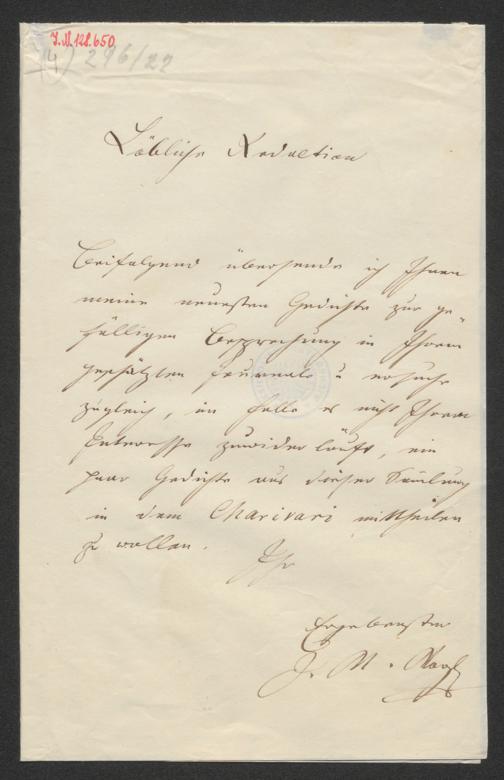 J.N. 128.650
296/22
Löbliche Redaction
Beifolgend übersende ich Ihnen
meine neuesten Gedichte zur ge-
fälligen Besprechung in Ihrem
geschätzten Journale u ersuche
zugleich, im Falle es nicht Ihrem
Interesse zuwider läuft, ein
paar Gedichte aus dieser Samlung
in dem Charivari mittheilen
zu wollen.
Ihr
Ergebenster
J. N. Vogl